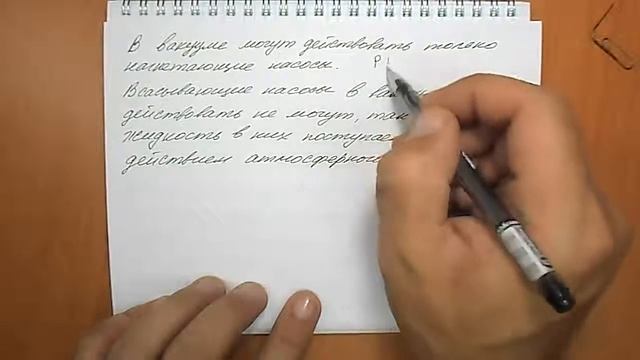 В вакууме могут действовать только
нагнетающие насосы. Р
Всасывающие насосы в
действовать не могут,
жидкость в них
действием